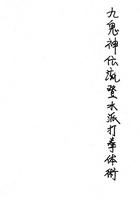 九鬼神伝流登水派打拳体術